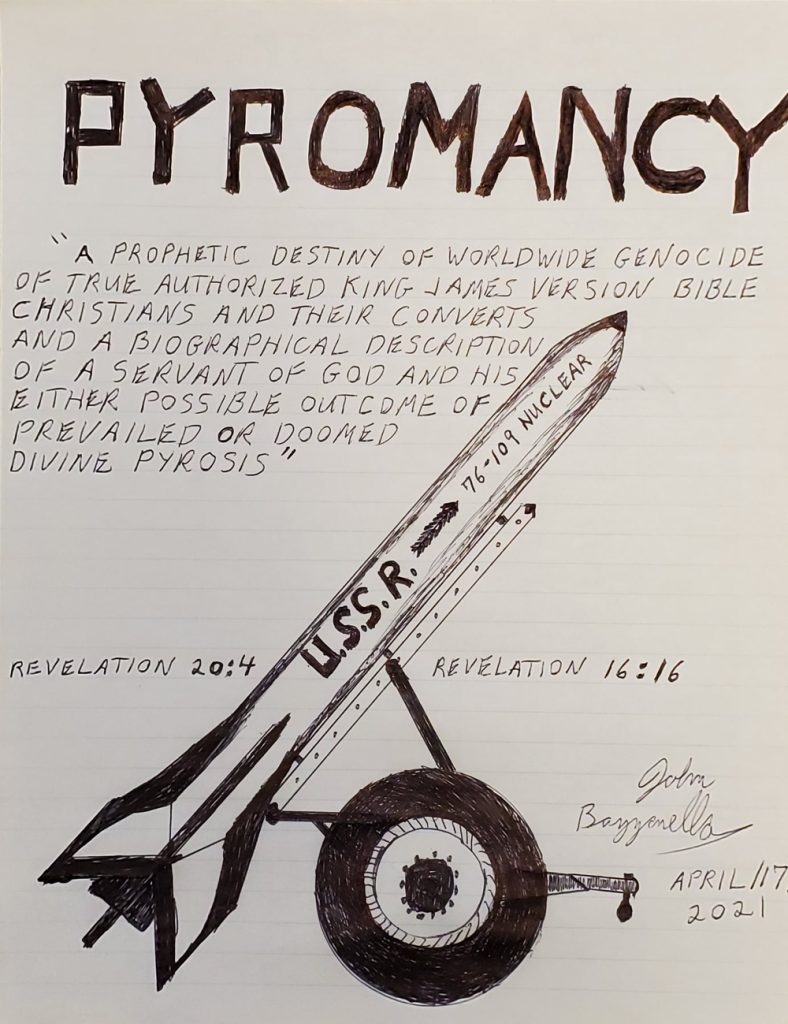 PYROMANCY
"A PROPHETIC DESTINY OF WORLDWIDE GENOCIDE
OF TRUE AUTHORIZED KING JAMES VERSION BIBLE
CHRISTIANS AND THEIR CONVERTS
AND A BIOGRAPHICAL DESCRIPTION
OF A SERVANT OF GOD AND HIS
EITHER POSSIBLE OUTCOME OF
PREVAILED OR DOOMED
DIVINE PYROSIS"
76-109 NUCLEAR
U.S.S.R.
REVELATION 20:4
REVELATION 16:16
John
Bazzanella
APRIL/17,
2021